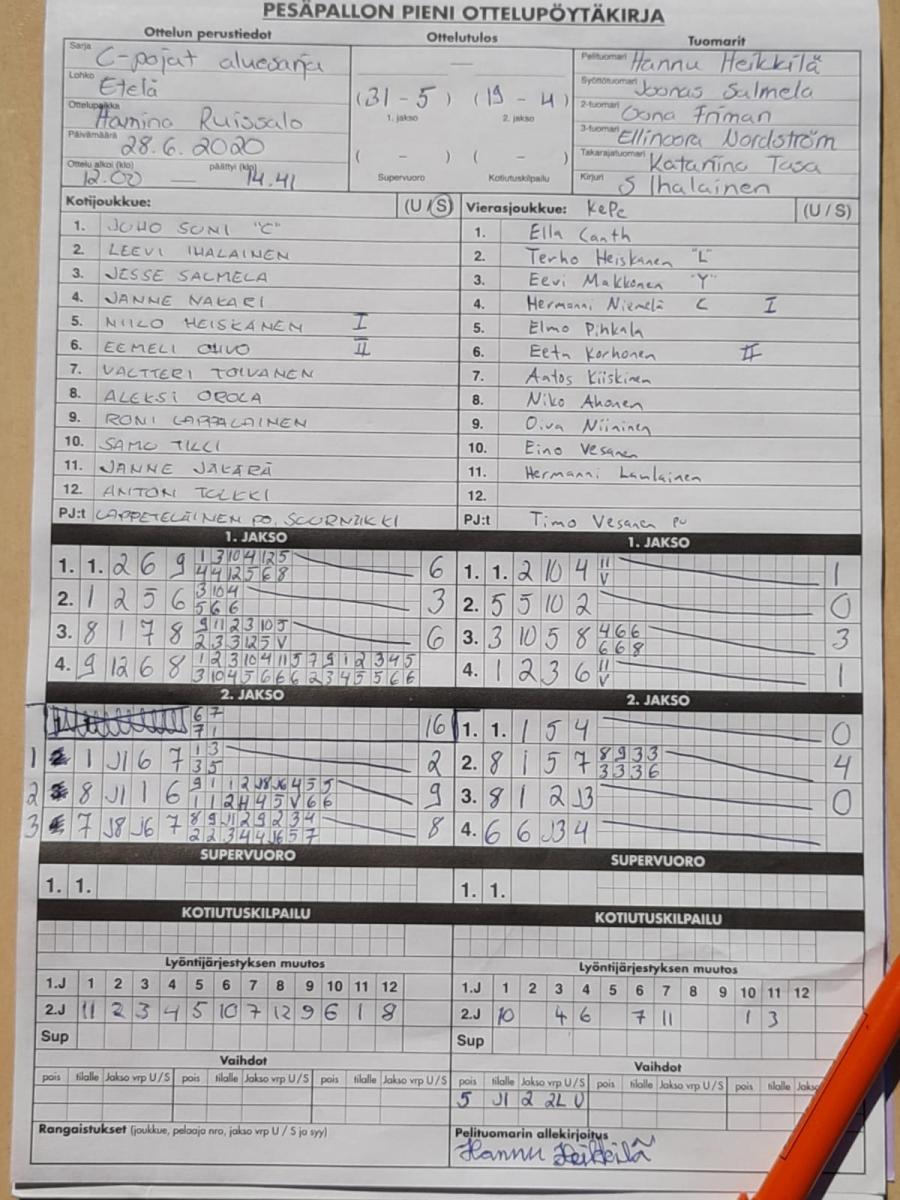 PESÄPALLON PIENI OTTELUPÖYTÄKIRJA
Ottelun perustiedot
Sarja C-pojat aluesarja
Lohko Etelä
Ottelupaikka Hamina Ruissalo
Päivämäärä 28.6.2020
Ottelu alkoi (klo) päättyi (klo)
12.00 — 14.41
Ottelutulos
—
(31 - 5) (19 - 4)
1. jakso 2. jakso
( - ) ( - )
Supervuoro Kotiutuskilpailu
Tuomarit
Pelituomari Hannu Heikkilä
Syöttötuomari Joonas Salmela
2-tuomari Oona Friman
3-tuomari Ellinoora Nordström
Takarajatuomari Katariina Tasa
Kirjuri S Ihalainen
Kotijoukkue: (U / S)
1. JUHO SONI "C"
2. LEEVI IHALAINEN
3. JESSE SALMELA
4. JANNE NAKARI
5. NIILO HEISKANEN I
6. EEMELI OHVO II
7. VALTTERI TOIVANEN
8. ALEKSI OROLA
9. RONI LAPPALAINEN
10. SAMO TILLI
11. JANNE JAKARÄ
12. ANTON TOLKKI
PJ:t LAPPETELÄINEN PO, SUURNÄKKI
Vierasjoukkue: KePe (U / S)
1. Ella Canth
2. Terho Heiskanen "L"
3. Eevi Makkonen "Y"
4. Hermanni Niemelä C I
5. Elmo Pihkala
6. Eetu Korhonen II
7. Aatos Kiiskinen
8. Niko Ahonen
9. Oiva Niininen
10. Eino Vesanen
11. Hermanni Laulainen
12.
PJ:t Timo Vesanen PU
1. JAKSO
1. 1. 2 6 9 1 3 10 4 12 5 6
4 4 12 5 6 8
2. 1 2 5 6 3 10 4 3
5 6 6
3. 8 1 7 8 9 11 2 3 10 5 6
2 3 3 12 5 V
4. 9 12 6 8 1 2 3 10 4 11 5 7 9 1 2 3 4 5
3 10 4 5 6 6 6 2 3 4 5 5 6 6
1. JAKSO
1. 1. 2 10 4 11 1
V
2. 5 5 10 2 0
3. 3 10 5 8 4 6 6 3
6 6 8
4. 1 2 3 6 11 1
V
2. JAKSO
6 7 16
7 1
1 1 J1 6 7 1 3 2
3 5
2 8 J1 1 6 9 1 1 2 J8 J6 4 5 5 9
1 1 2 4 4 5 V 6 6
3 7 J8 J6 7 8 9 11 2 9 2 3 4 8
2 2 3 4 4 J6 5 7
2. JAKSO
1. 1. 1 5 4 0
2. 8 1 5 7 8 9 3 3 4
3 3 3 6
3. 8 1 2 J3 0
4. 6 6 J3 4
SUPERVUORO
1. 1.
SUPERVUORO
1. 1.
KOTIUTUSKILPAILU
KOTIUTUSKILPAILU
Lyöntijärjestyksen muutos
1.J 1 2 3 4 5 6 7 8 9 10 11 12
2.J 11 2 3 4 5 10 7 12 9 6 1 8
Sup
Lyöntijärjestyksen muutos
1.J 1 2 3 4 5 6 7 8 9 10 11 12
2.J 10 4 6 7 11 1 3
Sup
Vaihdot
pois tilalle Jakso vrp U / S pois tilalle Jakso vrp U / S pois tilalle Jakso vrp U / S
Vaihdot
pois tilalle Jakso vrp U / S pois tilalle Jakso vrp U / S pois tilalle Jakso
5 J1 2 2L U
Rangaistukset (joukkue, pelaaja nro, jakso vrp U / S ja syy)
Pelituomarin allekirjoitus
Hannu Heikkilä